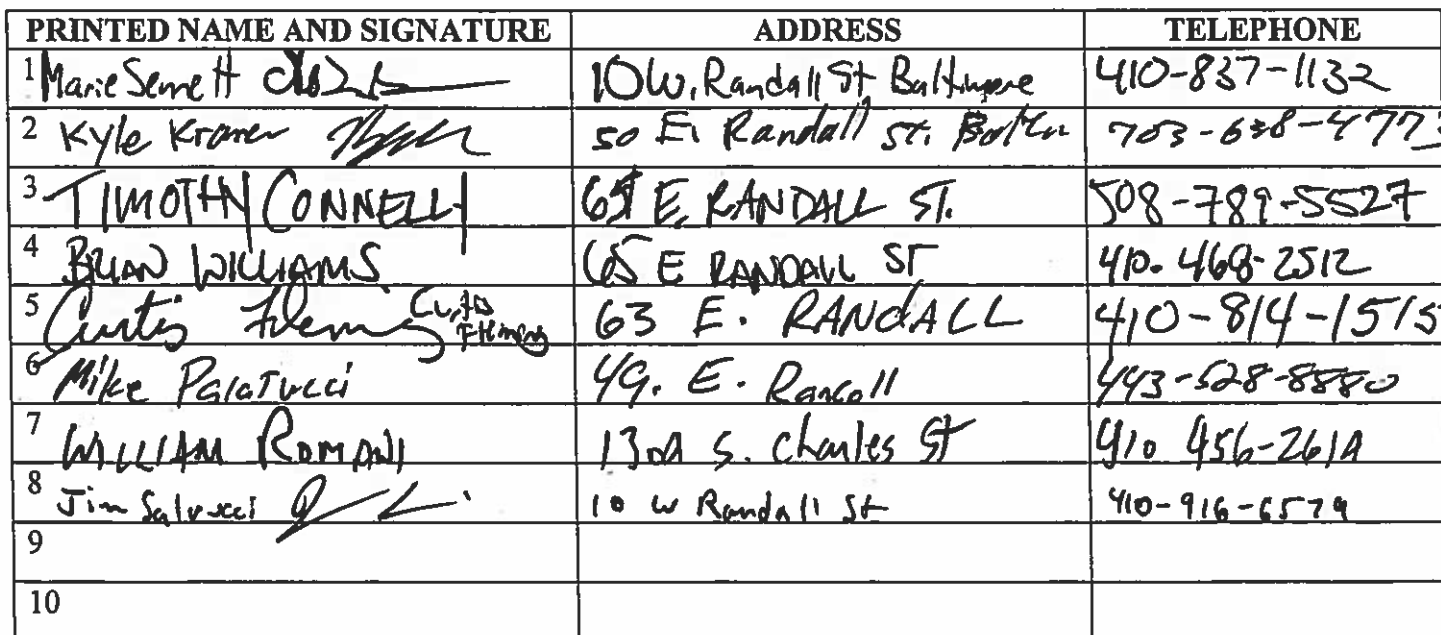 PRINTED NAME AND SIGNATURE ADDRESS TELEPHONE
1 Marie Sennett 10 W. Randall St Baltimore 410-837-1132
2 Kyle Kramer 50 E. Randall St. 703-638-4773
3 TIMOTHY CONNELLY E. RANDALL ST. 508-789-5527
4 BRIAN WILLIAMS 65 E RANDALL ST 410-468-2512
5 Curtis Fleming Curtis Fleming 63 E. RANDALL 410-814-1515
6 Mike Palatucci 49. E. 443-528-8880
7 WILLIAM ROMANI S. Charles St 410
8 Jim Salvucci 10 W Randall St 410-916-6579
9
10